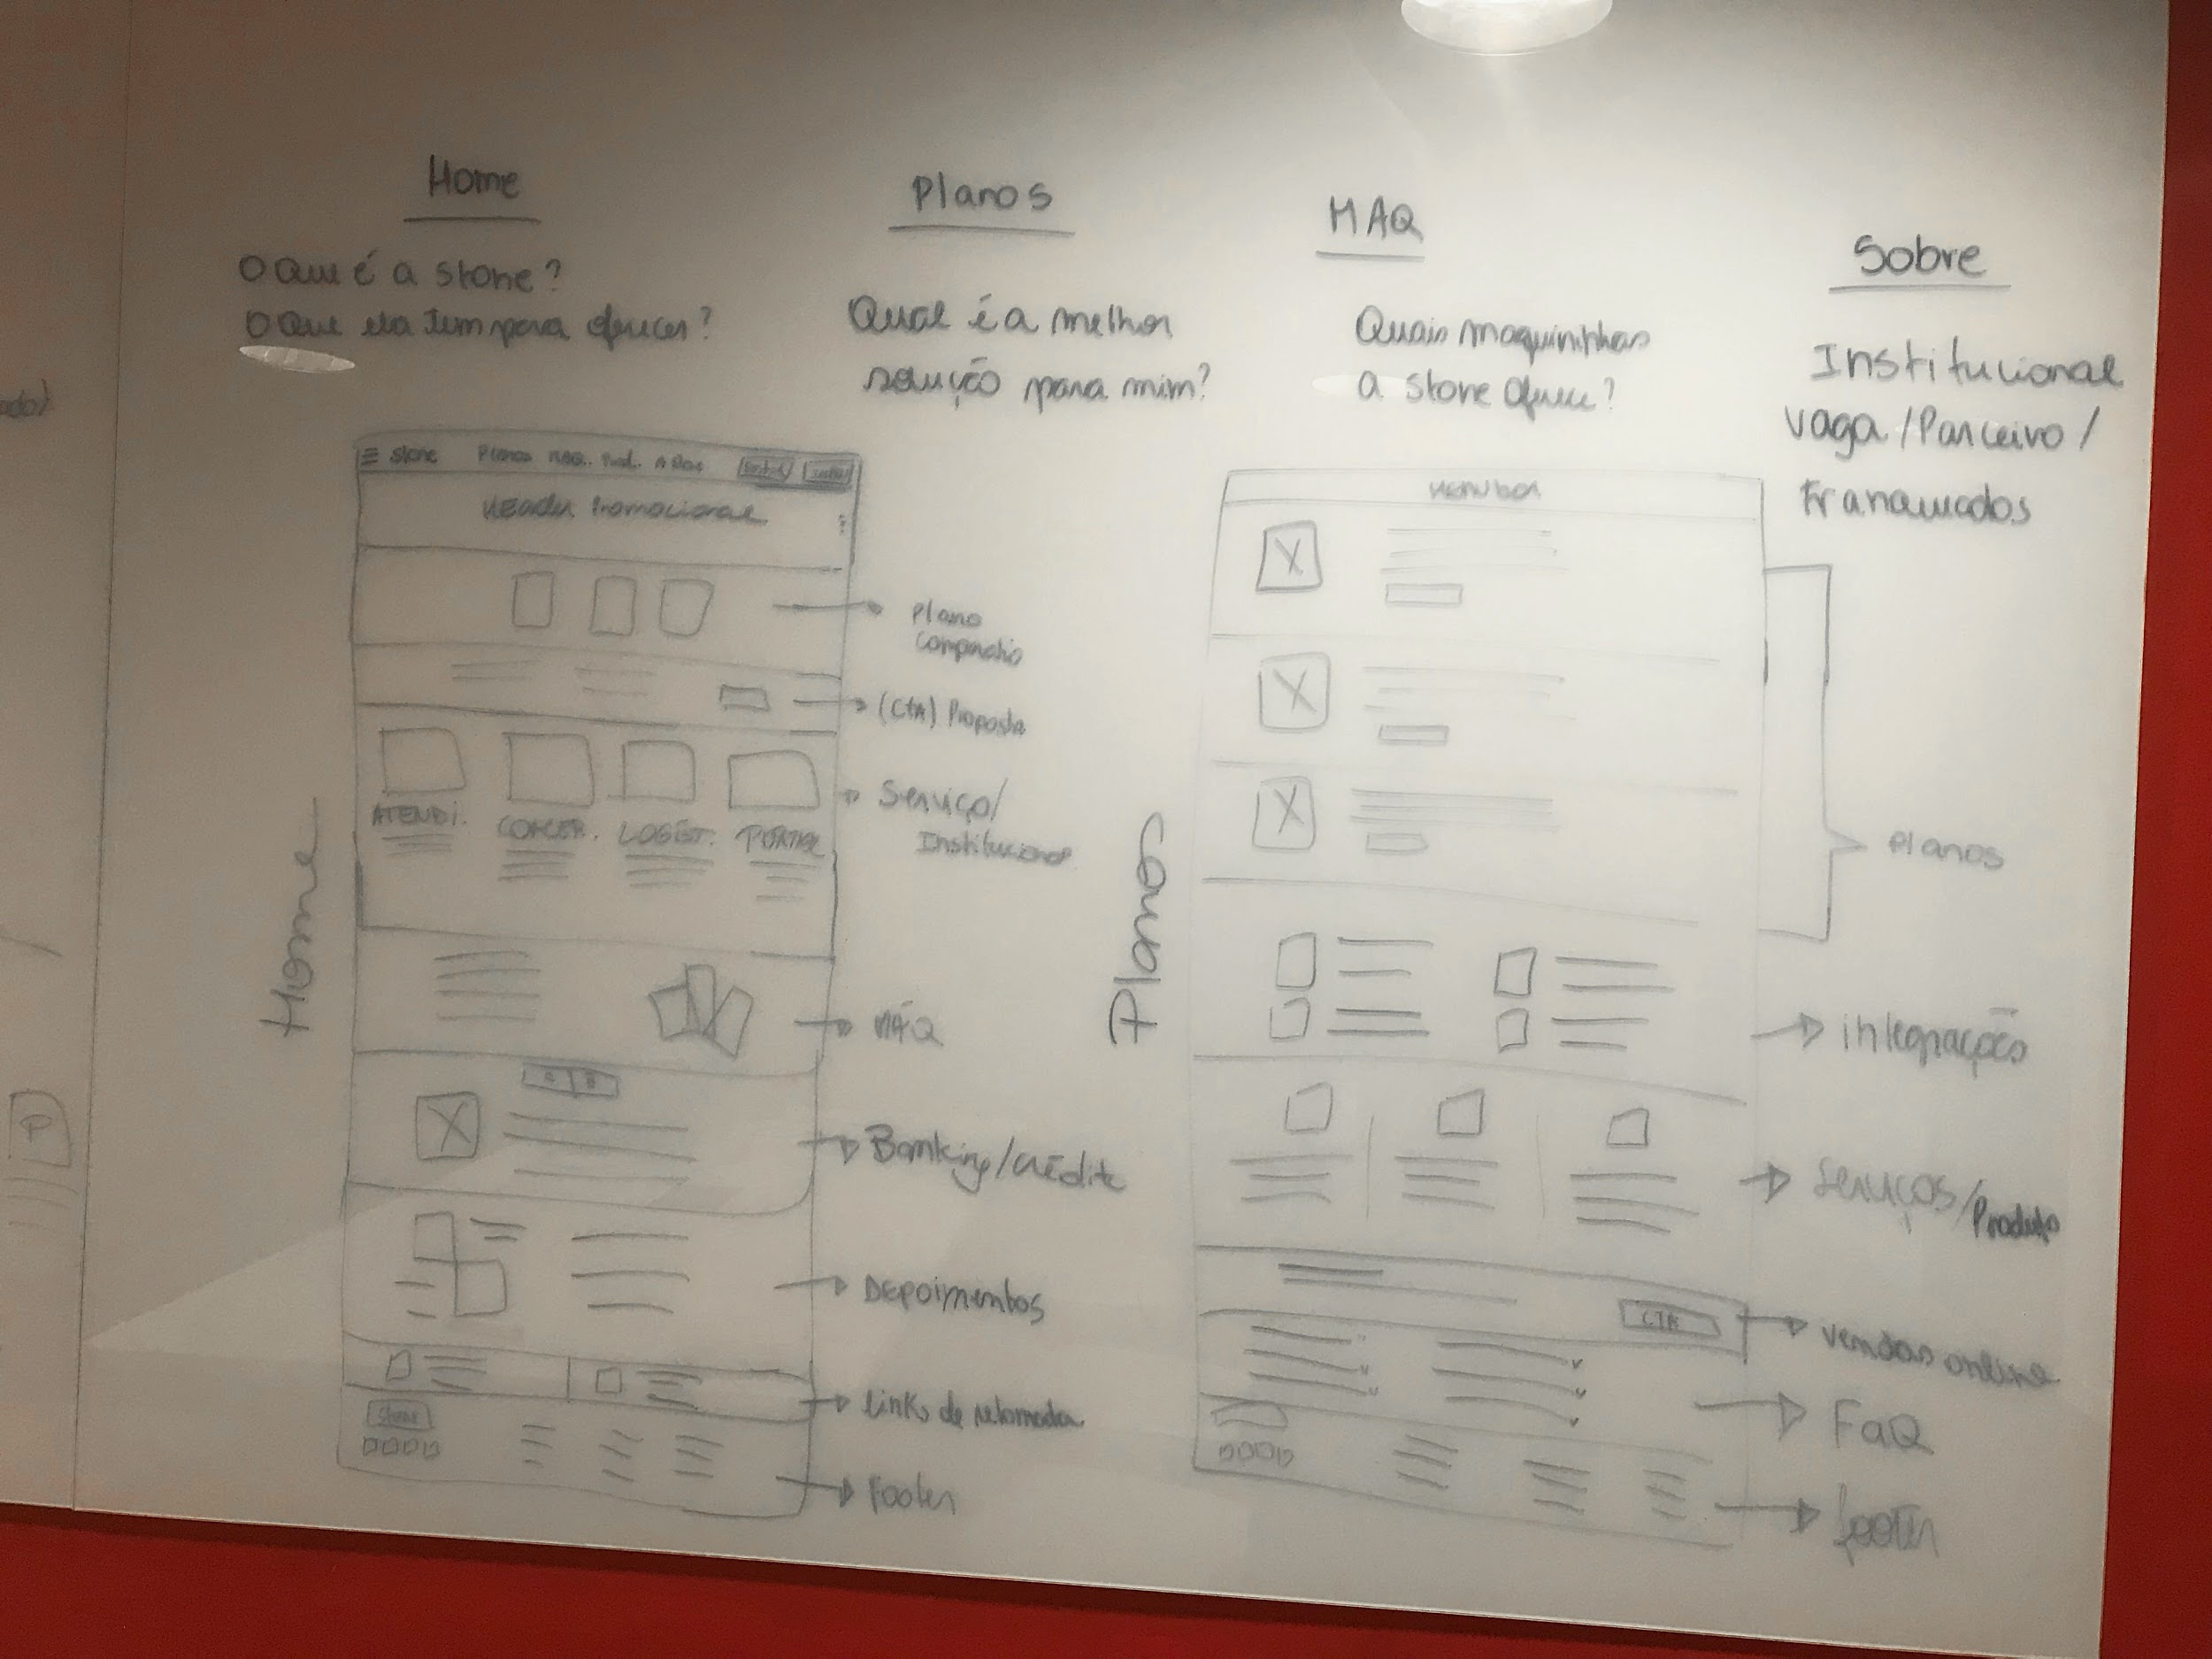 Home
O que é a Stone?
O que ela tem para oferecer?
Planos
Qual é a melhor
solução para mim?
MAQ
Quais maquininhas
a Stone oferece?
Sobre
Institucional
Vaga / Parceiro /
Franqueados
Home
Stone Planos MAQ. Prod. A Stone
Header Promocional
Plano
(CTA) Proposta
ATENDI. CONCER. LOGÍST. PORTAL
Serviço/
Institucional
MÁQ
Banking/crédito
Depoimentos
links de retomada
Stone
Footer
Planos
Menu bar
Planos
integrações
Serviços/Produto
CTA
vendas online
FaQ
footer
P